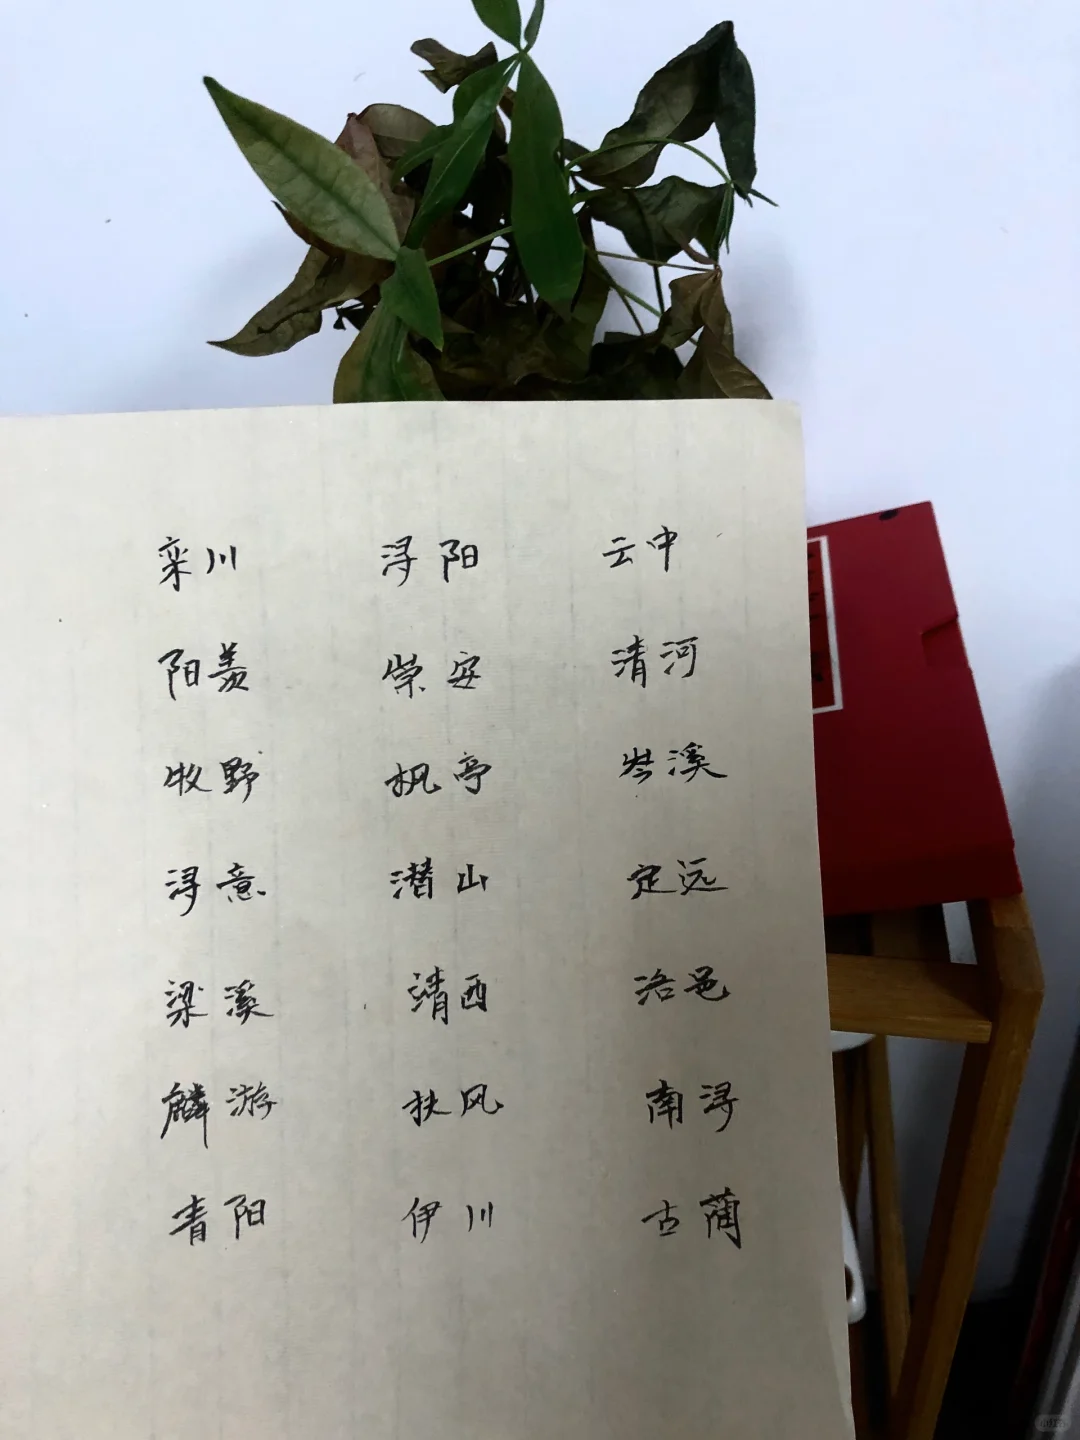 栾川 浔阳 云中
阳羡 崇安 清河
牧野 枫亭 岑溪
浔意 潜山 定远
梁溪 靖西 洛邑
麟游 扶风 南浔
青阳 伊川 古蔺